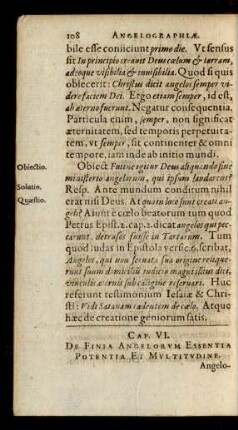 108 ANGELOGRAPHIÆ.
bile esse coniiciunt primo die. Vt sensus
sit In principio creauit Deus cœlum & terram,
adeoque visibilia & inuisibilia. Quod si quis
obiecerit: Christus dicit angelos semper vi-
dere faciem Dei. Ergo etiam semper, id est,
ab æterno fuerunt. Negatur consequentia.
Particula enim, semper, non significat
æternitatem, sed temporis perpetuita-
tem, vt semper, sit continenter & omni
tempore, iam inde ab initio mundi.
Obiectio. Obiect. Fuitne igitur Deus aliquando sine
ministerio angelorum, qui ipsum laudarent?
Solutio. Resp. Ante mundum conditum nihil
Quæstio. erat nisi Deus. At quo in loco sunt creati ange-
li? Aiunt è cœlo beatorum tum quod
Petrus Epist. 2. cap. 2. dicat angelos qui pec-
carunt, detrusos fuisse in Tartarum. Tum
quod Iudas in Epistola versic. 6. scribat,
Angelos, qui non seruata sua origine relique-
runt suum domicilium iudicio magni illius diei,
vinculis æternis sub caligine reseruari. Huc
referunt testimonium Iesaiæ & Chri-
sti: Vidi Satanam cadentem de cœlo. Atque
hæc de creatione geniorum satis.
CAP. VI.
DE FINIA ANGELORVM ESSENTIA
POTENTIA ET MVLTITVDINE.
Angelo-